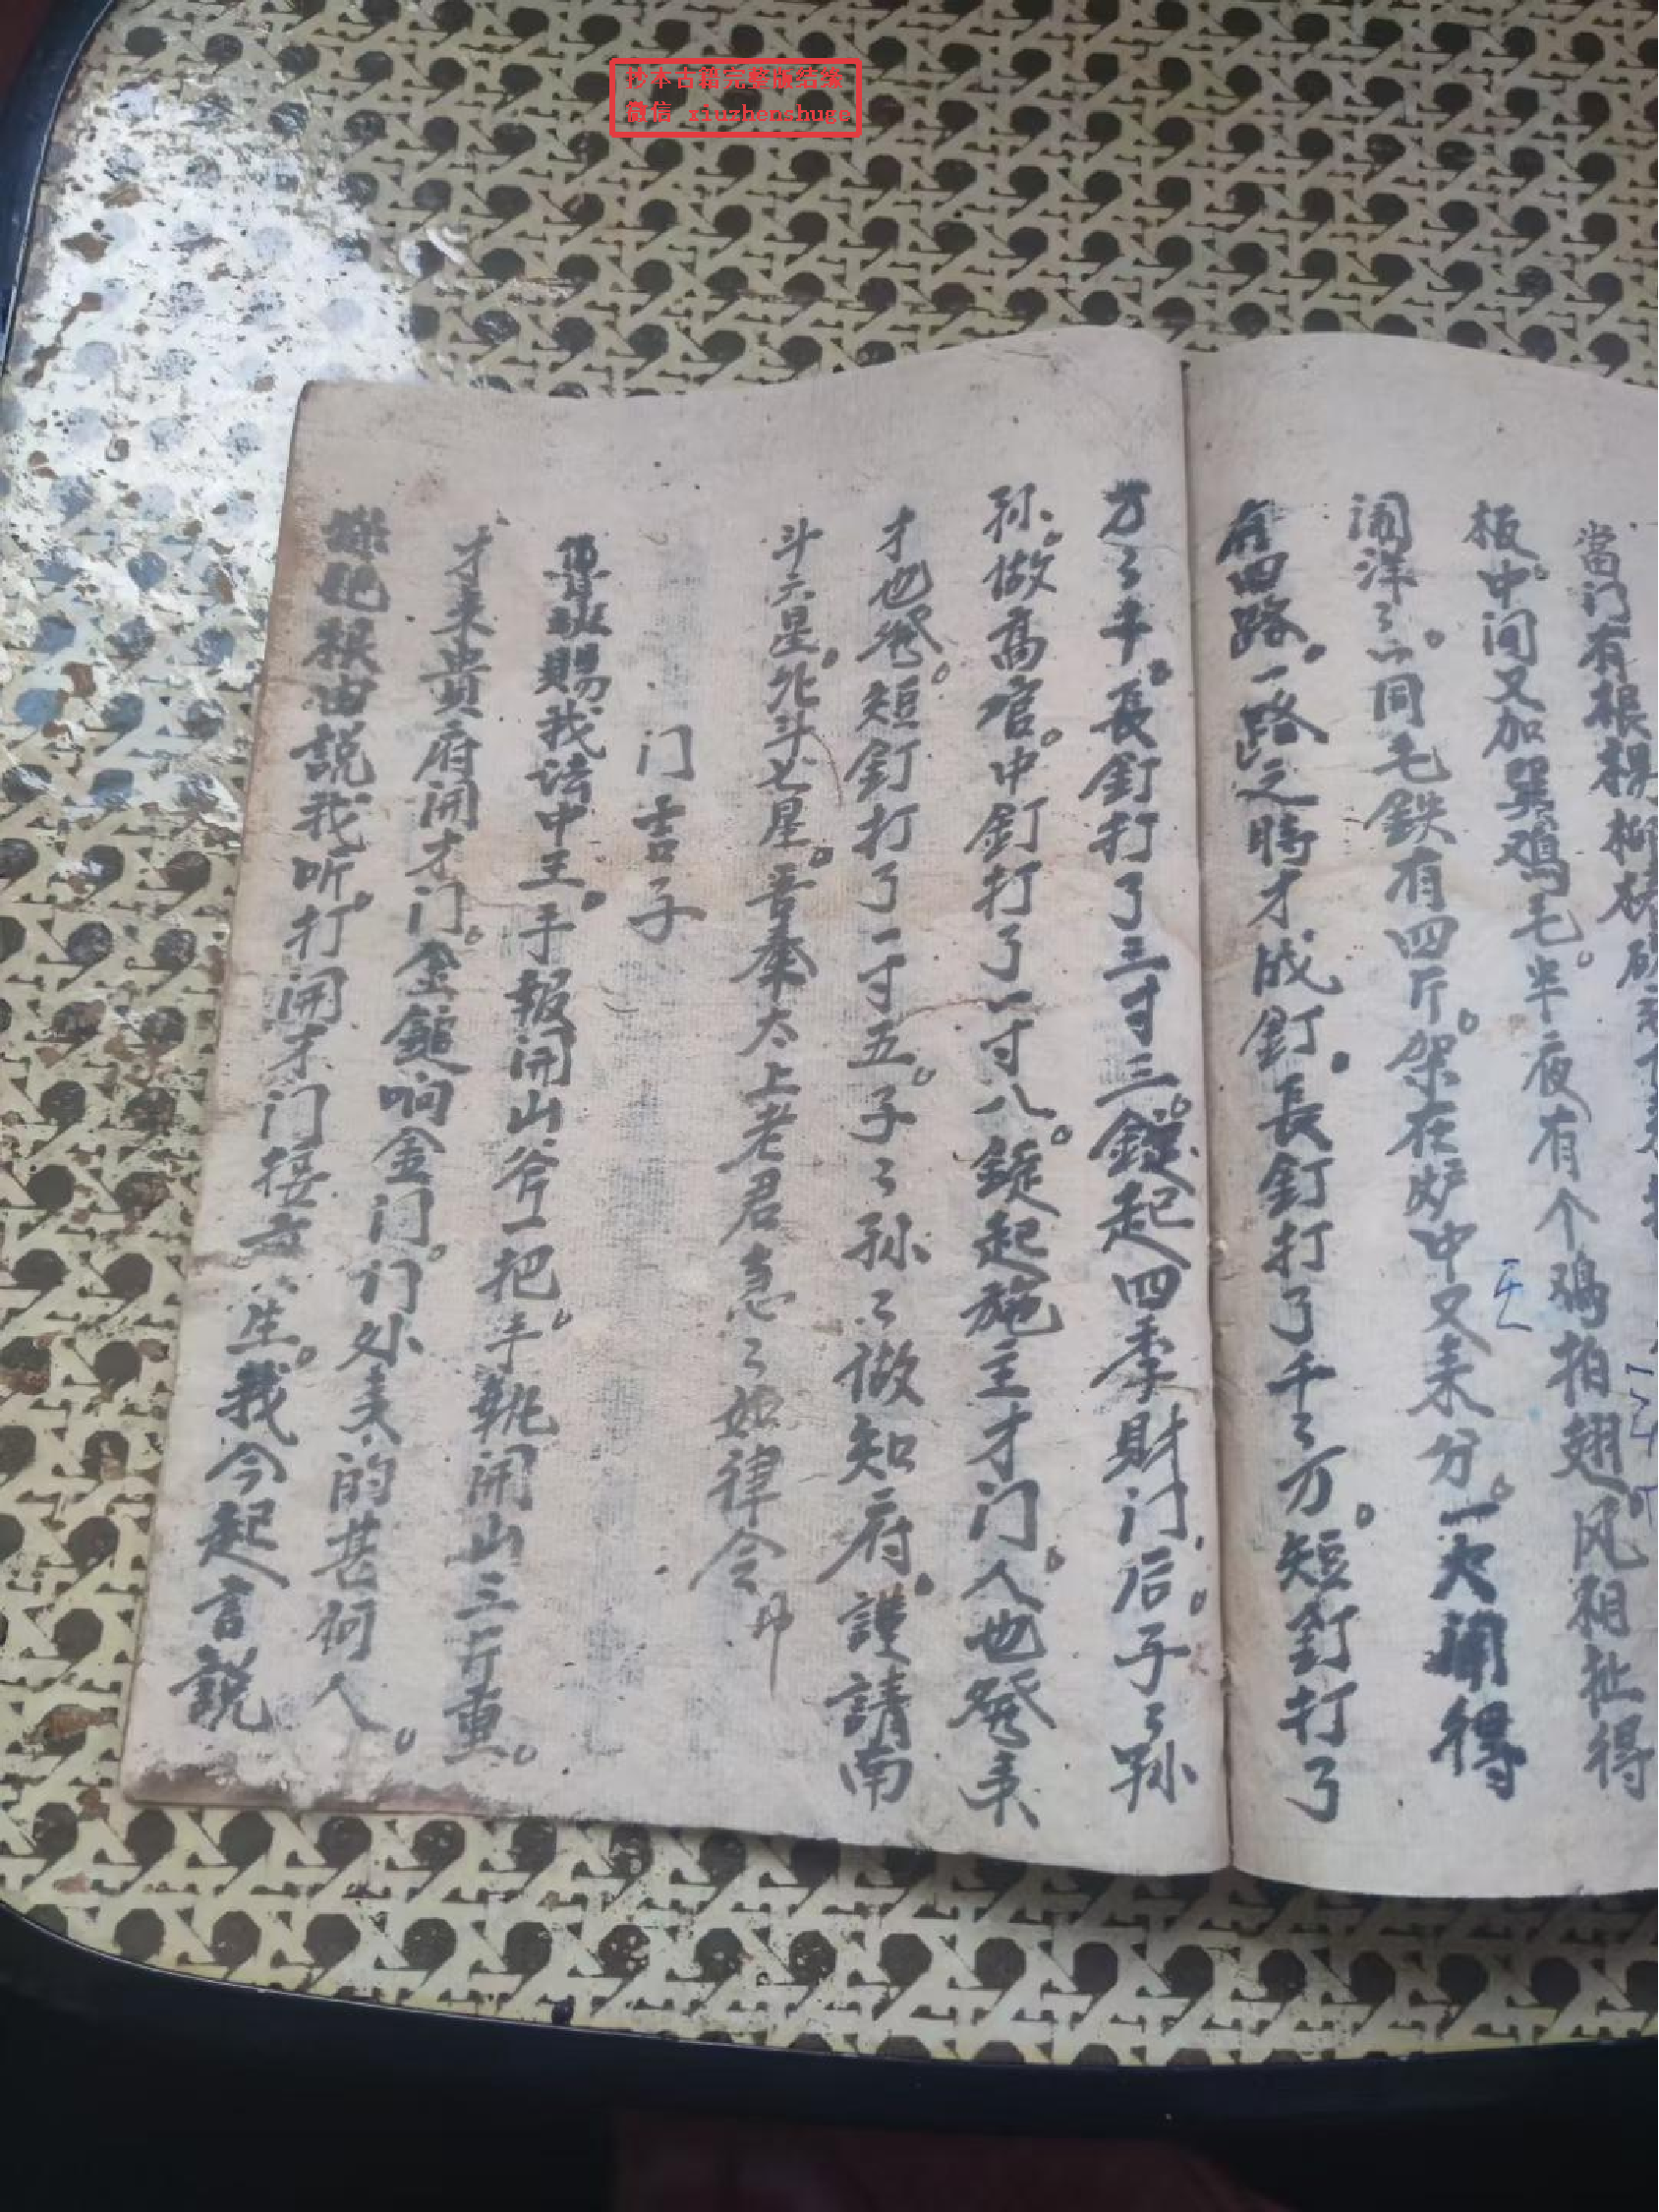 抄本古籍完整版结缘
微信 xiuzhenshuge
當门有根楊柳
板中间又加巽鸡毛半夜有个鸡拍翅风相扯得
闹洋〻一同毛鉄有四斤架在炉中又来分一火闹得
有四路一路之時才成釘長釘打了千〻万短釘打了
万〻千長釘打了三寸三錠起四季財门后子〻孫
孫做高官中釘打了一寸八錠起施主才门人也發来
才也發短釘打了一寸五子〻孫〻做知府謹請南
斗六星北斗七星吾奉太上老君急〻如律令
门言子
魯班賜我法中王手報開山斧一把手執開山三斤重
才来貴府開才门金鎚响金门门外来的甚何人
根由説我听打開才门接先生我今起言説